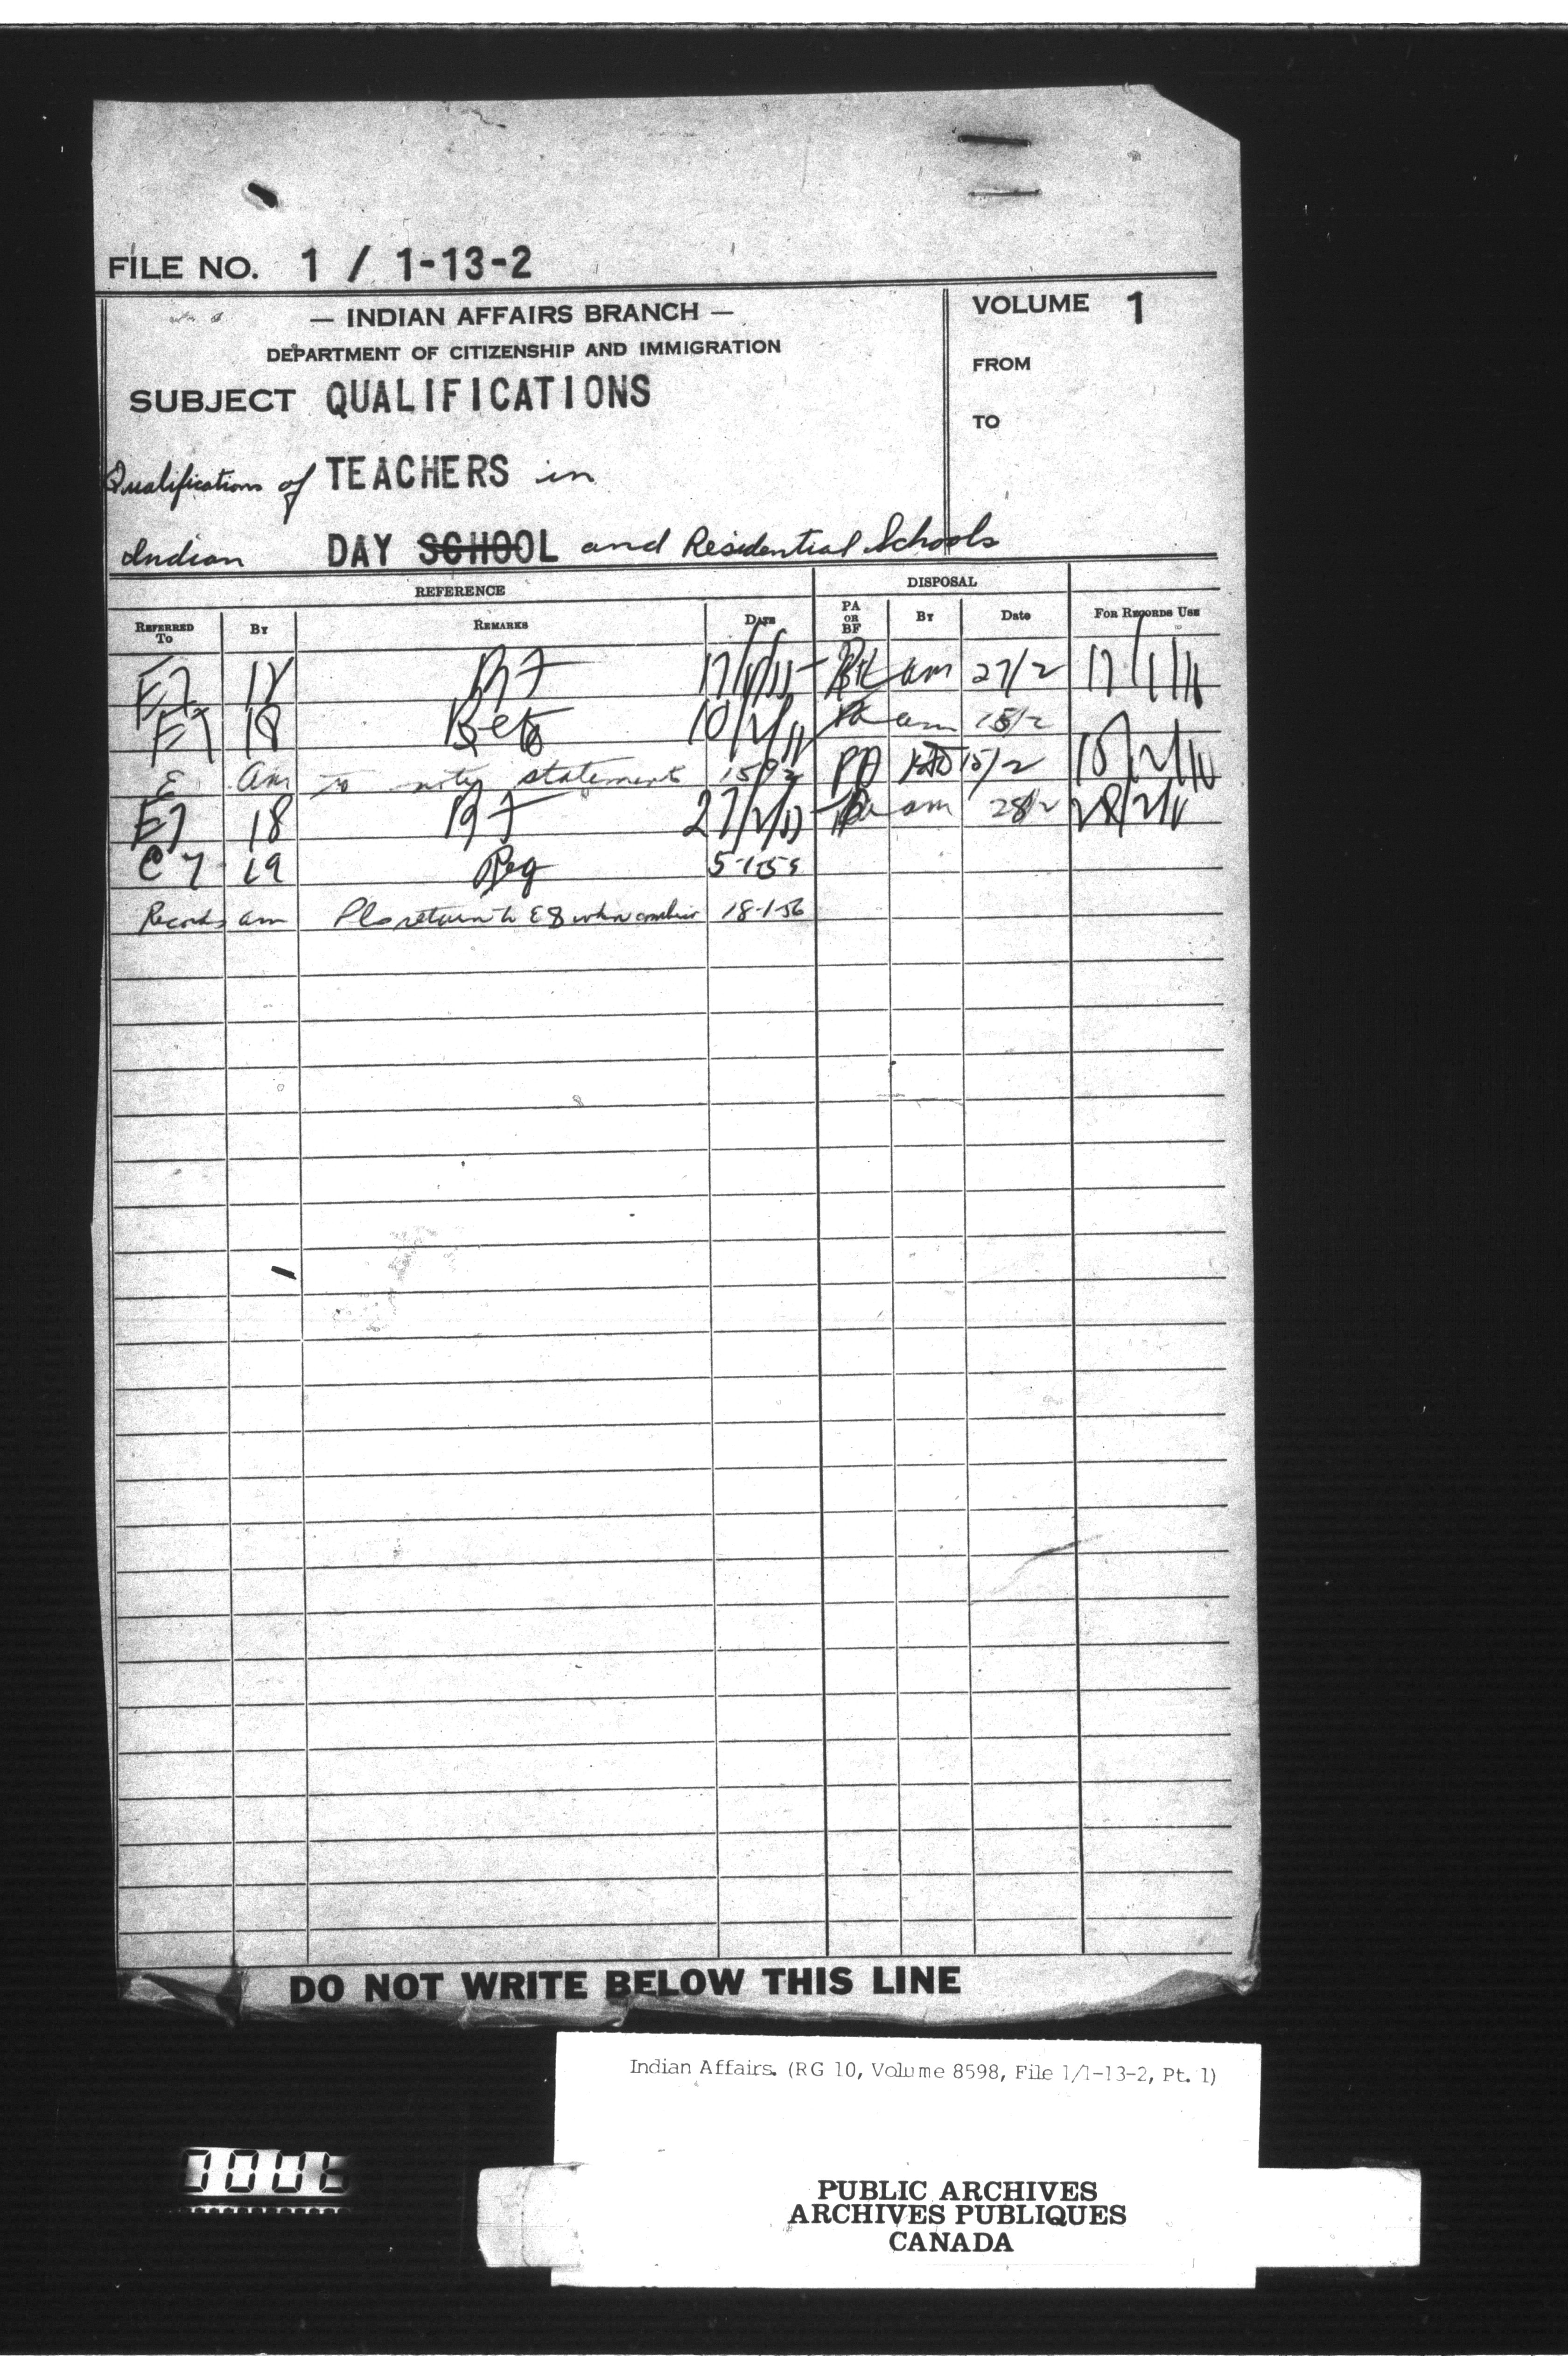 FILE NO. 1 / 1-13-2
— INDIAN AFFAIRS BRANCH —
DEPARTMENT OF CITIZENSHIP AND IMMIGRATION
VOLUME 1
FROM
TO
SUBJECT QUALIFICATIONS
Qualifications of TEACHERS in
Indian DAY SCHOOL and Residential Schools
REFERENCE DISPOSAL
REFERRED TO BY REMARKS DATE PA OR BF BY Date FOR RECORDS USE
E7 18 am 27/2
E7 18 am 15/2
E am statement PA 15/2
E7 18 am 28/2
19 Req
Records am Pls return to E8 when 18-1-56
DO NOT WRITE BELOW THIS LINE
Indian Affairs. (RG 10, Volume 8598, File 1/1-13-2, Pt. 1)
PUBLIC ARCHIVES
ARCHIVES PUBLIQUES
CANADA